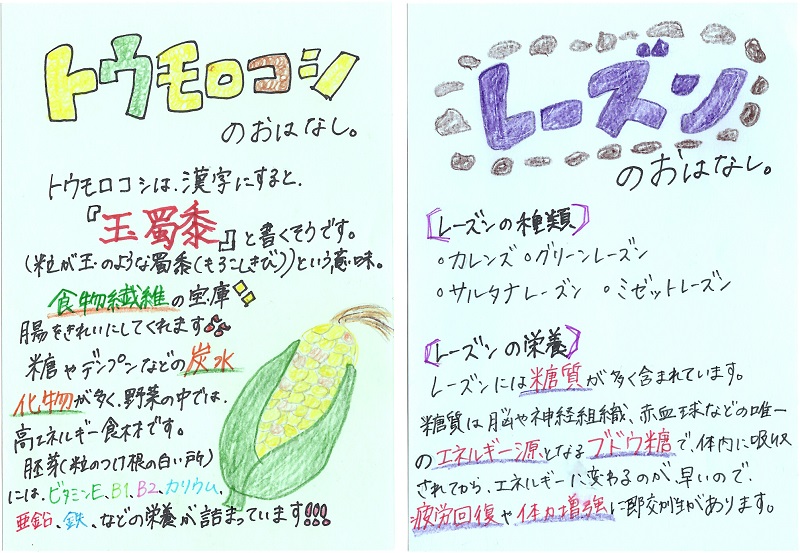 トウモロコシ
のおはなし。
トウモロコシは、漢字にすると、
『玉蜀黍』と書くそうです。
(粒が玉のような蜀黍(もろこしきび))という意味。
食物繊維の宝庫
腸をきれいにしてくれます
糖やデンプンなどの炭水
化物が多く、野菜の中では、
高エネルギー食材です。
胚芽(粒のつけ根の白い所)
には、ビタミンE、B1、B2、カリウム、
亜鉛、鉄、などの栄養が詰まっています!!!
レーズン
のおはなし。
【レーズンの種類】
○カレンズ ○グリーンレーズン
○サルタナレーズン ○ミゼットレーズン
【レーズンの栄養】
レーズンには糖質が多く含まれています。
糖質は脳や神経組織、赤血球などの唯一
のエネルギー源となるブドウ糖で、体内に吸収
されてから、エネルギーに変わるのが早いので、
疲労回復や体力増強に即効性があります。